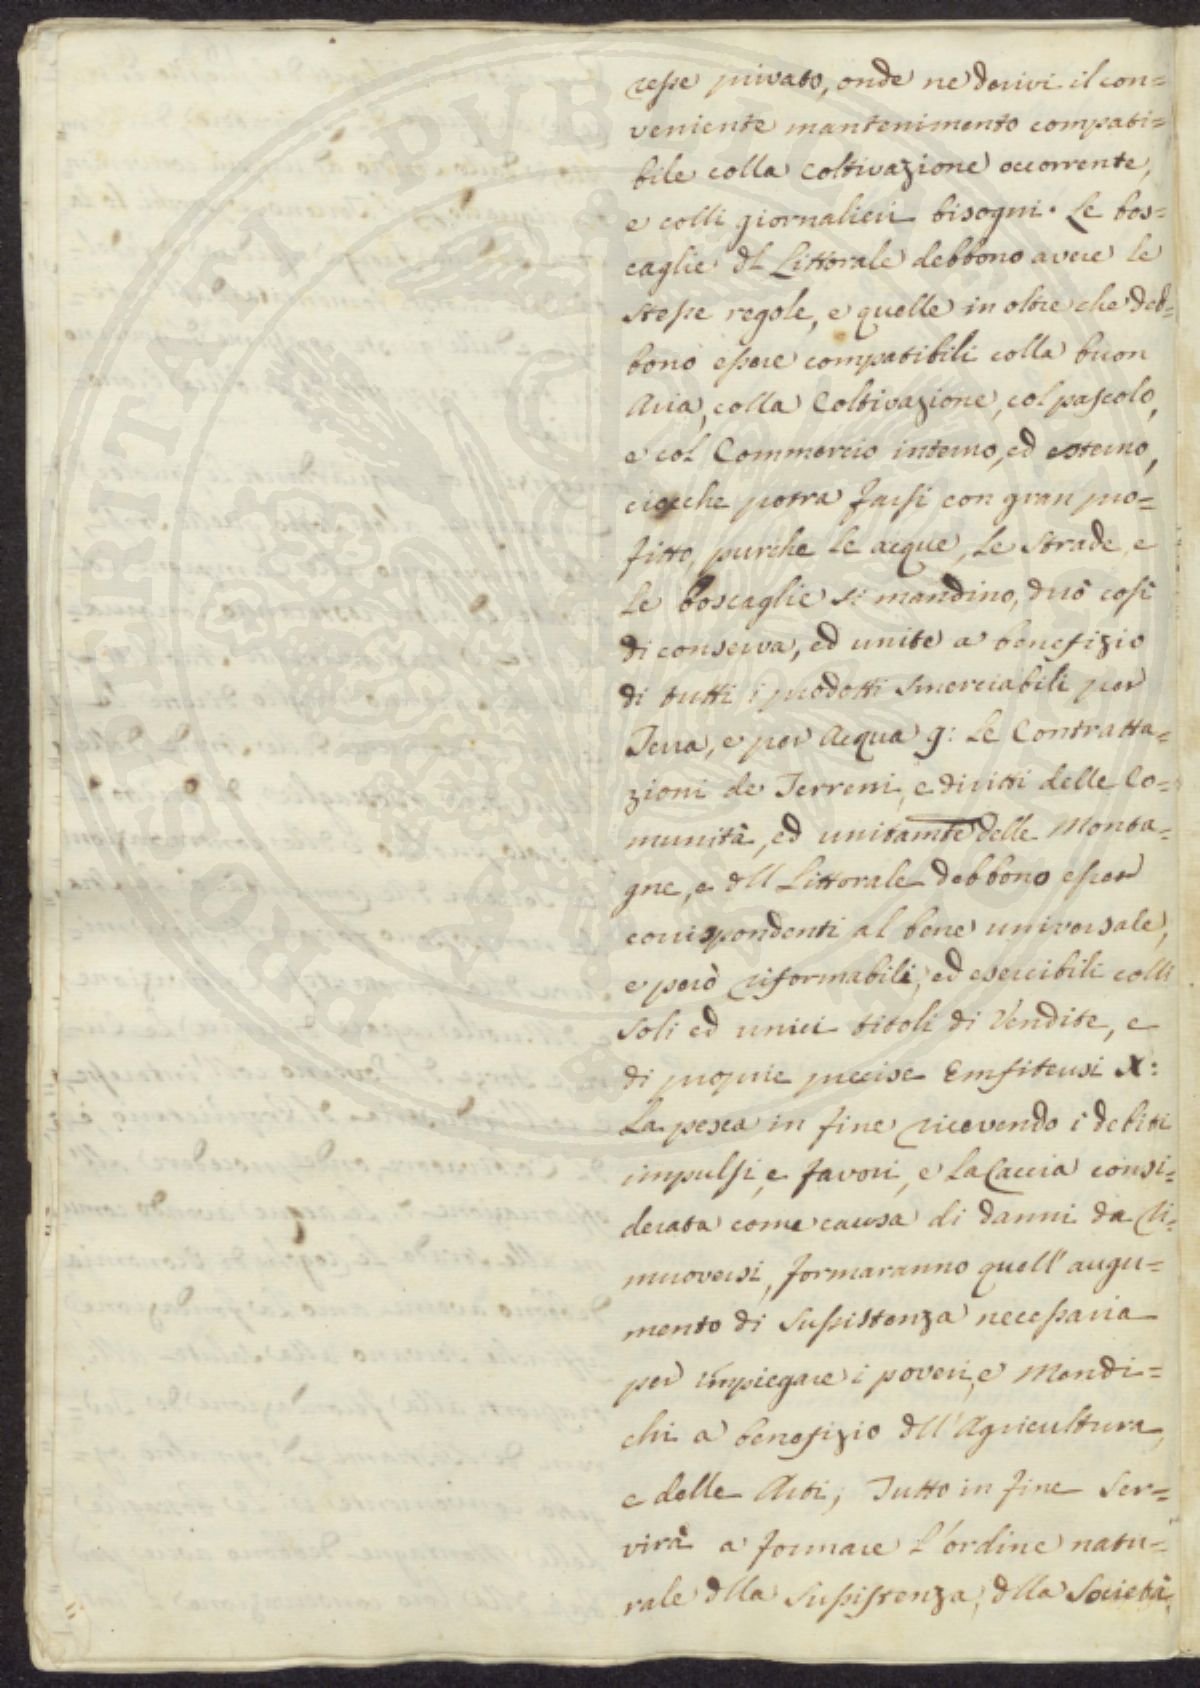 resse privato, onde ne derivi il con=
veniente mantenimento compati=
bile colla Coltivazione occorrente,
e colli giornalieri bisogni. Le bos=
caglie dl Littorale debbono avere le
stesse regole, e quelle in oltre che deb=
bono essere compatibili colla buon
Aria, colla Coltivazione, col pascolo,
e col Commercio interno, ed esterno,
ciocche potra farsi con gran pro=
fitto, purche le acque, le Strade e
le boscaglie si mandino, dirò così
di conserva, ed unite a benefizio
di tutti i prodotti smerciabili per
Terra, e per Acqua g: Le Contratta=
zioni de Terreni, e diritti delle Co=
munità, ed unitamte delle Monta=
gne, e dll Littorale debbono esser
corrispondenti al bene universale,
e però riformabili, ed esercibili colli
soli ed unici titoli di Vendite, e
di proprie precise Emfiteusi X:
La pesca in fine ricevendo i debiti
impulsi, e favori, e la Caccia consi=
derata come causa di danni da ri=
muoversi, formaranno quell' augu=
mento di Sussistenza necessaria
per impiegare i poveri, e Mendi=
chi a benefizio dll' Agricultura,
e delle Arti; Tutto in fine ser=
virà a formare l'ordine natu=
rale dlla Sussistenza, dlla Società,
POSTERITATI PVBLICO